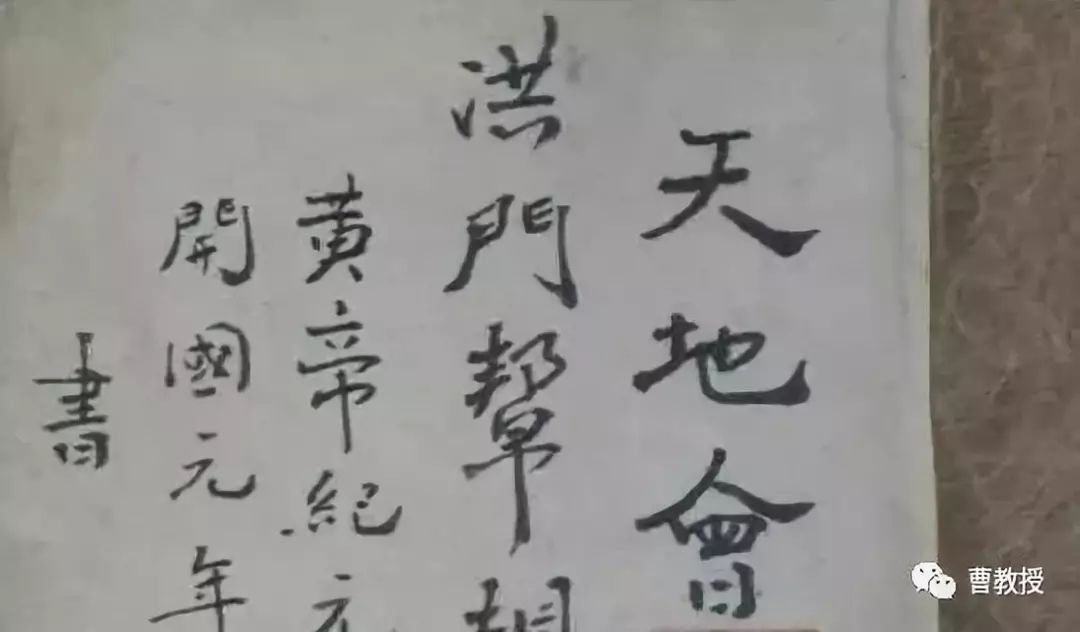 天地會
洪門幫
黃帝紀元
開國元年
書
曹教授